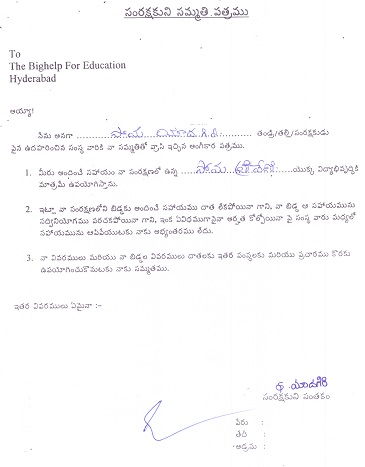 సంరక్షకుని సమ్మతి పత్రము
To
The Bighelp For Education
Hyderabad
అయ్యా!
నేను అనగా ........ తండ్రి/తల్లి/సంరక్షకుడు
పైన ఉదహరించిన సంస్థ వారికి నా సమ్మతితో వ్రాసి ఇచ్చిన అంగీకార పత్రము.
1. మీరు అందించే సహాయం నా సంరక్షణలో ఉన్న ........ యొక్క విద్యాభివృద్ధికి
మాత్రమే ఉపయోగిస్తాను.
2. ఇట్లా నా సంరక్షణలోని బిడ్డకు అందించే సహాయము దాత లేకపోయినా గాని, నా బిడ్డ ఆ సహాయమును
సద్వినియోగము పరచకపోయినా గాని, ఇంక ఏవిధముగానైనా అర్హత కోల్పోయినా పై సంస్థ వారు మధ్యలో
సహాయమును ఆపివేయుటకు నాకు అభ్యంతరము లేదు.
3. నా వివరములు మరియు నా బిడ్డల వివరములు దాతలకు ఇతర సంస్థలకు మరియు ప్రచారము కొరకు
ఉపయోగించుకొనుటకు నాకు సమ్మతము.
ఇతర వివరములు ఏమైనా :-
సంరక్షకుని సంతకం
పేరు :
తేది :
అడ్రసు :